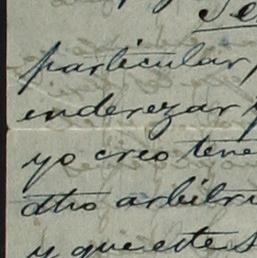 Se
particular,
enderezar
yo creo tene
otro arbitri
y que este s